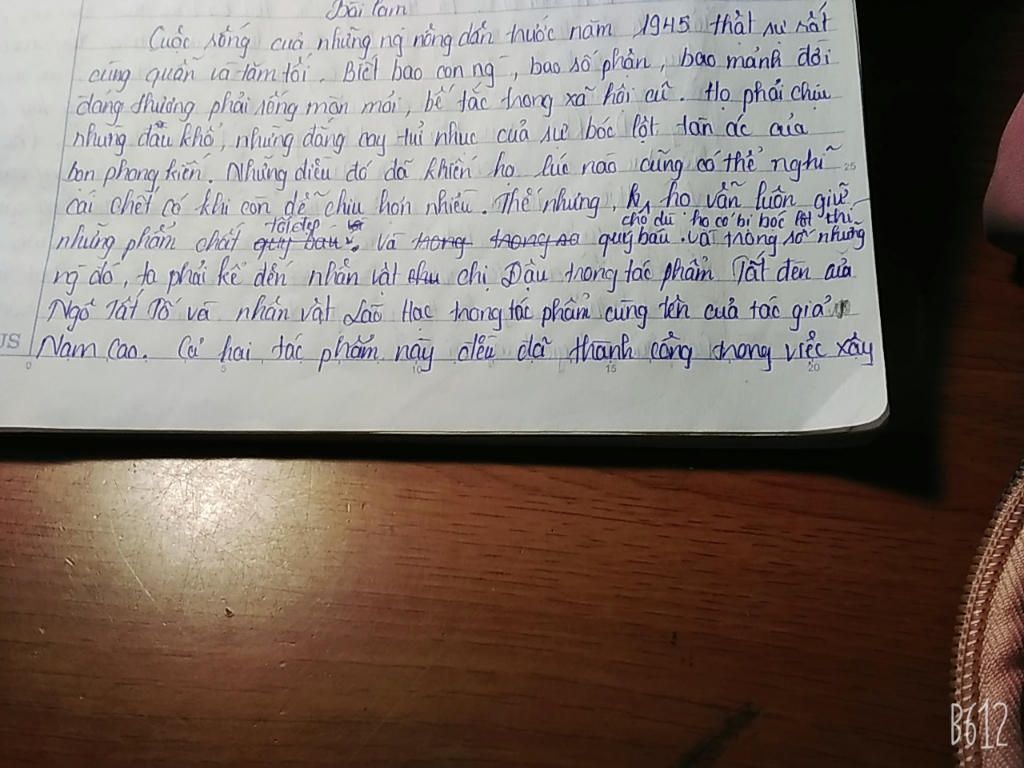 Bài làm
Cuộc sống của những ng nông dân trước năm 1945 thật sự rất
cùng quẫn và tăm tối. Biết bao con ng, bao số phận, bao mảnh đời
đáng thương phải sống mòn mỏi, bế tắc trong xã hội cũ. Họ phải chịu
những đau khổ, những đắng cay tủi nhục của sự bóc lột tàn ác của
bọn phong kiến. Những điều đó đã khiến họ lúc nào cũng có thể nghĩ
cái chết có khi còn dễ chịu hơn nhiều. Thế nhưng, họ vẫn luôn giữ
cho dù họ có bị bóc lột thì
những phẩm chất quý báu tốt đẹp và trong trong số quý báu. Và trong số những
ng đó, ta phải kể đến nhân vật như chị Dậu trong tác phẩm Tắt đèn của
Ngô Tất Tố và nhân vật Lão Hạc trong tác phẩm cùng tên của tác giả
Nam Cao. Cả hai tác phẩm này đều đã thành công trong việc xây
JS
25
0 5 10 15 20
B612